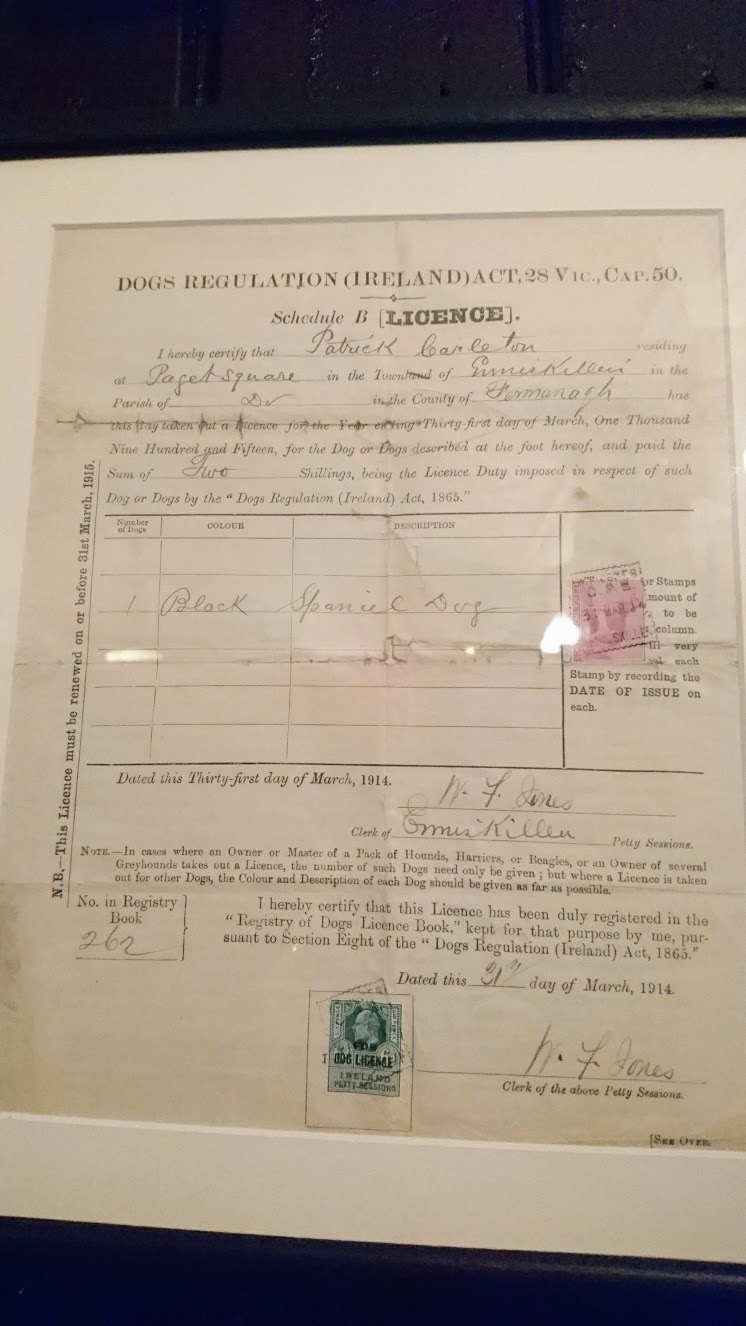 DOGS REGULATION (IRELAND) ACT, 28 VIC., CAP. 50.
Schedule B [LICENCE].
I hereby certify that Patrick Carleton residing
at Paget Square in the Townland of Enniskillen in the
Parish of Do in the County of Fermanagh has
this day taken out a Licence for the Year ending Thirty-first day of March, One Thousand
Nine Hundred and Fifteen, for the Dog or Dogs described at the foot hereof, and paid the
Sum of Two Shillings, being the Licence Duty imposed in respect of such
Dog or Dogs by the "Dogs Regulation (Ireland) Act, 1865."
N.B.—This Licence must be renewed on or before 31st March, 1915.
Number of Dogs COLOUR DESCRIPTION
1 Black Spaniel Dog
or Stamps
mount of
to be
column.
very
each
Stamp by recording the
DATE OF ISSUE on
each.
Dated this Thirty-first day of March, 1914.
W. F. Jones
Clerk of Enniskillen Petty Sessions.
NOTE.—In cases where an Owner or Master of a Pack of Hounds, Harriers, or Beagles, or an Owner of several
Greyhounds takes out a Licence, the number of such Dogs need only be given; but where a Licence is taken
out for other Dogs, the Colour and Description of each Dog should be given as far as possible.
No. in Registry
Book
262
I hereby certify that this Licence has been duly registered in the
"Registry of Dogs Licence Book," kept for that purpose by me, pur-
suant to Section Eight of the "Dogs Regulation (Ireland) Act, 1865."
Dated this 31st day of March, 1914.
FOR
DOG LICENCE
IRELAND
PETTY SESSIONS
W. F. Jones
Clerk of the above Petty Sessions.
[SEE OVER.